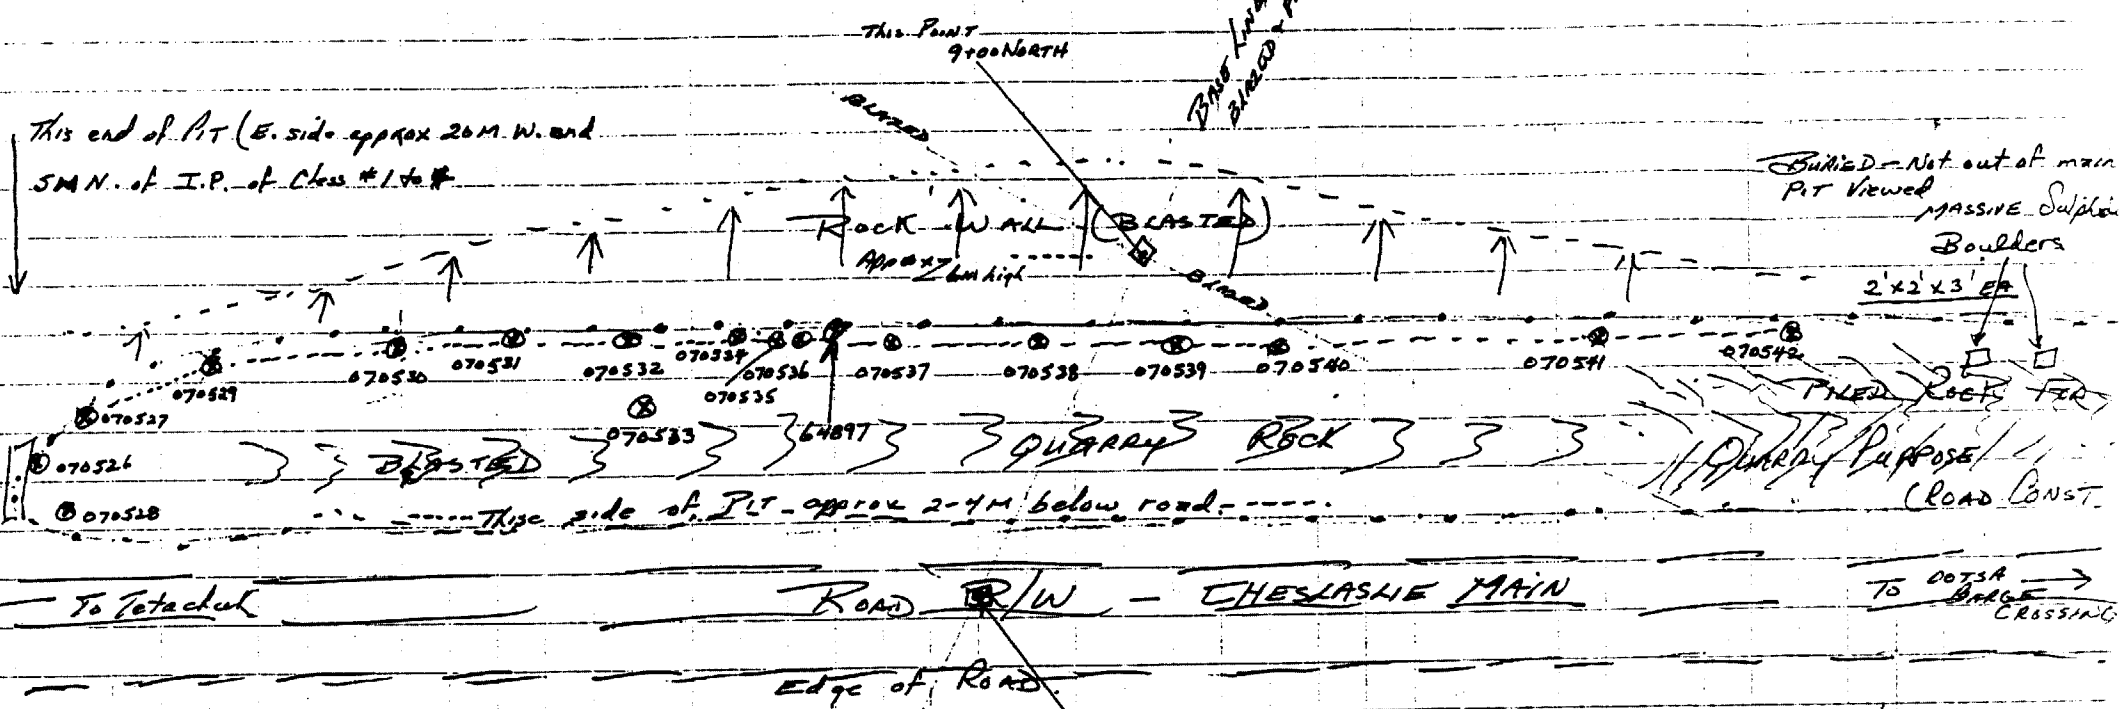 This Point
9+00 NORTH
BASE LINE
BLAZED &
BLAZED
This end of PIT (E. side approx 20M W. and
5M N. of I.P. of Class #1 to #
BURIED - Not out of main
PIT Viewed
MASSIVE Sulphi
Boulders
2'x2'x3' EA
ROCK WALL (BLASTED)
Approx 6m high
BLAZED
070534
070531
070542
070530
070532
070536
070537
070538
070539
070540
070541
070529
070535
PILED ROCK FOR
070527
070533
64897
QUARRY ROCK
BLASTED
QUARRY PURPOSE
070526
(ROAD CONST.
070528
This side of PIT - approx 2-4M below road
To Tetachuk
ROAD R/W - CHESLASLIE MAIN
To OOTSA
BARGE
CROSSING
Edge of ROAD